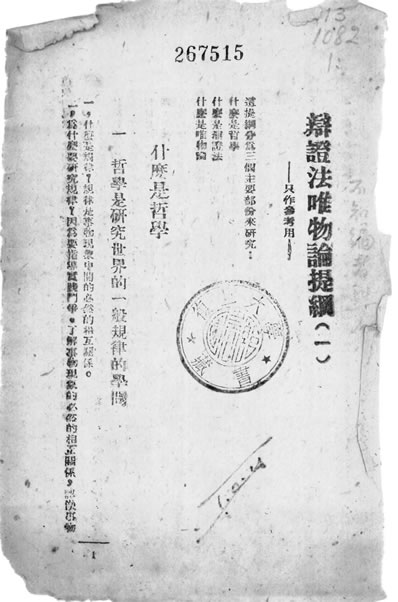 267515
辯證法唯物論提綱(一)
——只作參考用
這提綱分為三個主要部份來研究:
什麼是哲學
什麼是辯證法
什麼是唯物論
什麼是哲學
一 哲學是研究世界的一般規律的學問
一,什麼是規律?規律是事物現象中間的必然的相互關係。
一,為什麼要研究規律?因為要指導實戰鬥爭,了解事物現象的必然的相互關係,
1